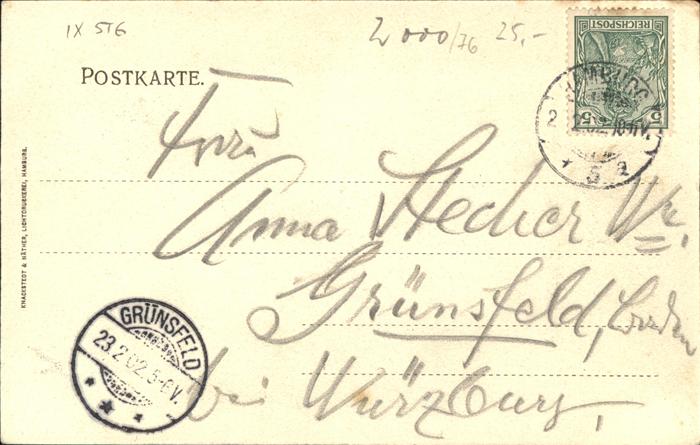 IX ST6
2000/76 25,-
REICHSPOST
5 5
HAMBURG
2
5 a
POSTKARTE.
Frau
Anna Stecher We.
Grünsfeld, Baden
bei Würzburg,
GRÜNSFELD
23.2.02.5-6V.
KNACKSTEDT & NÄTHER, LICHTDRUCKEREI, HAMBURG.